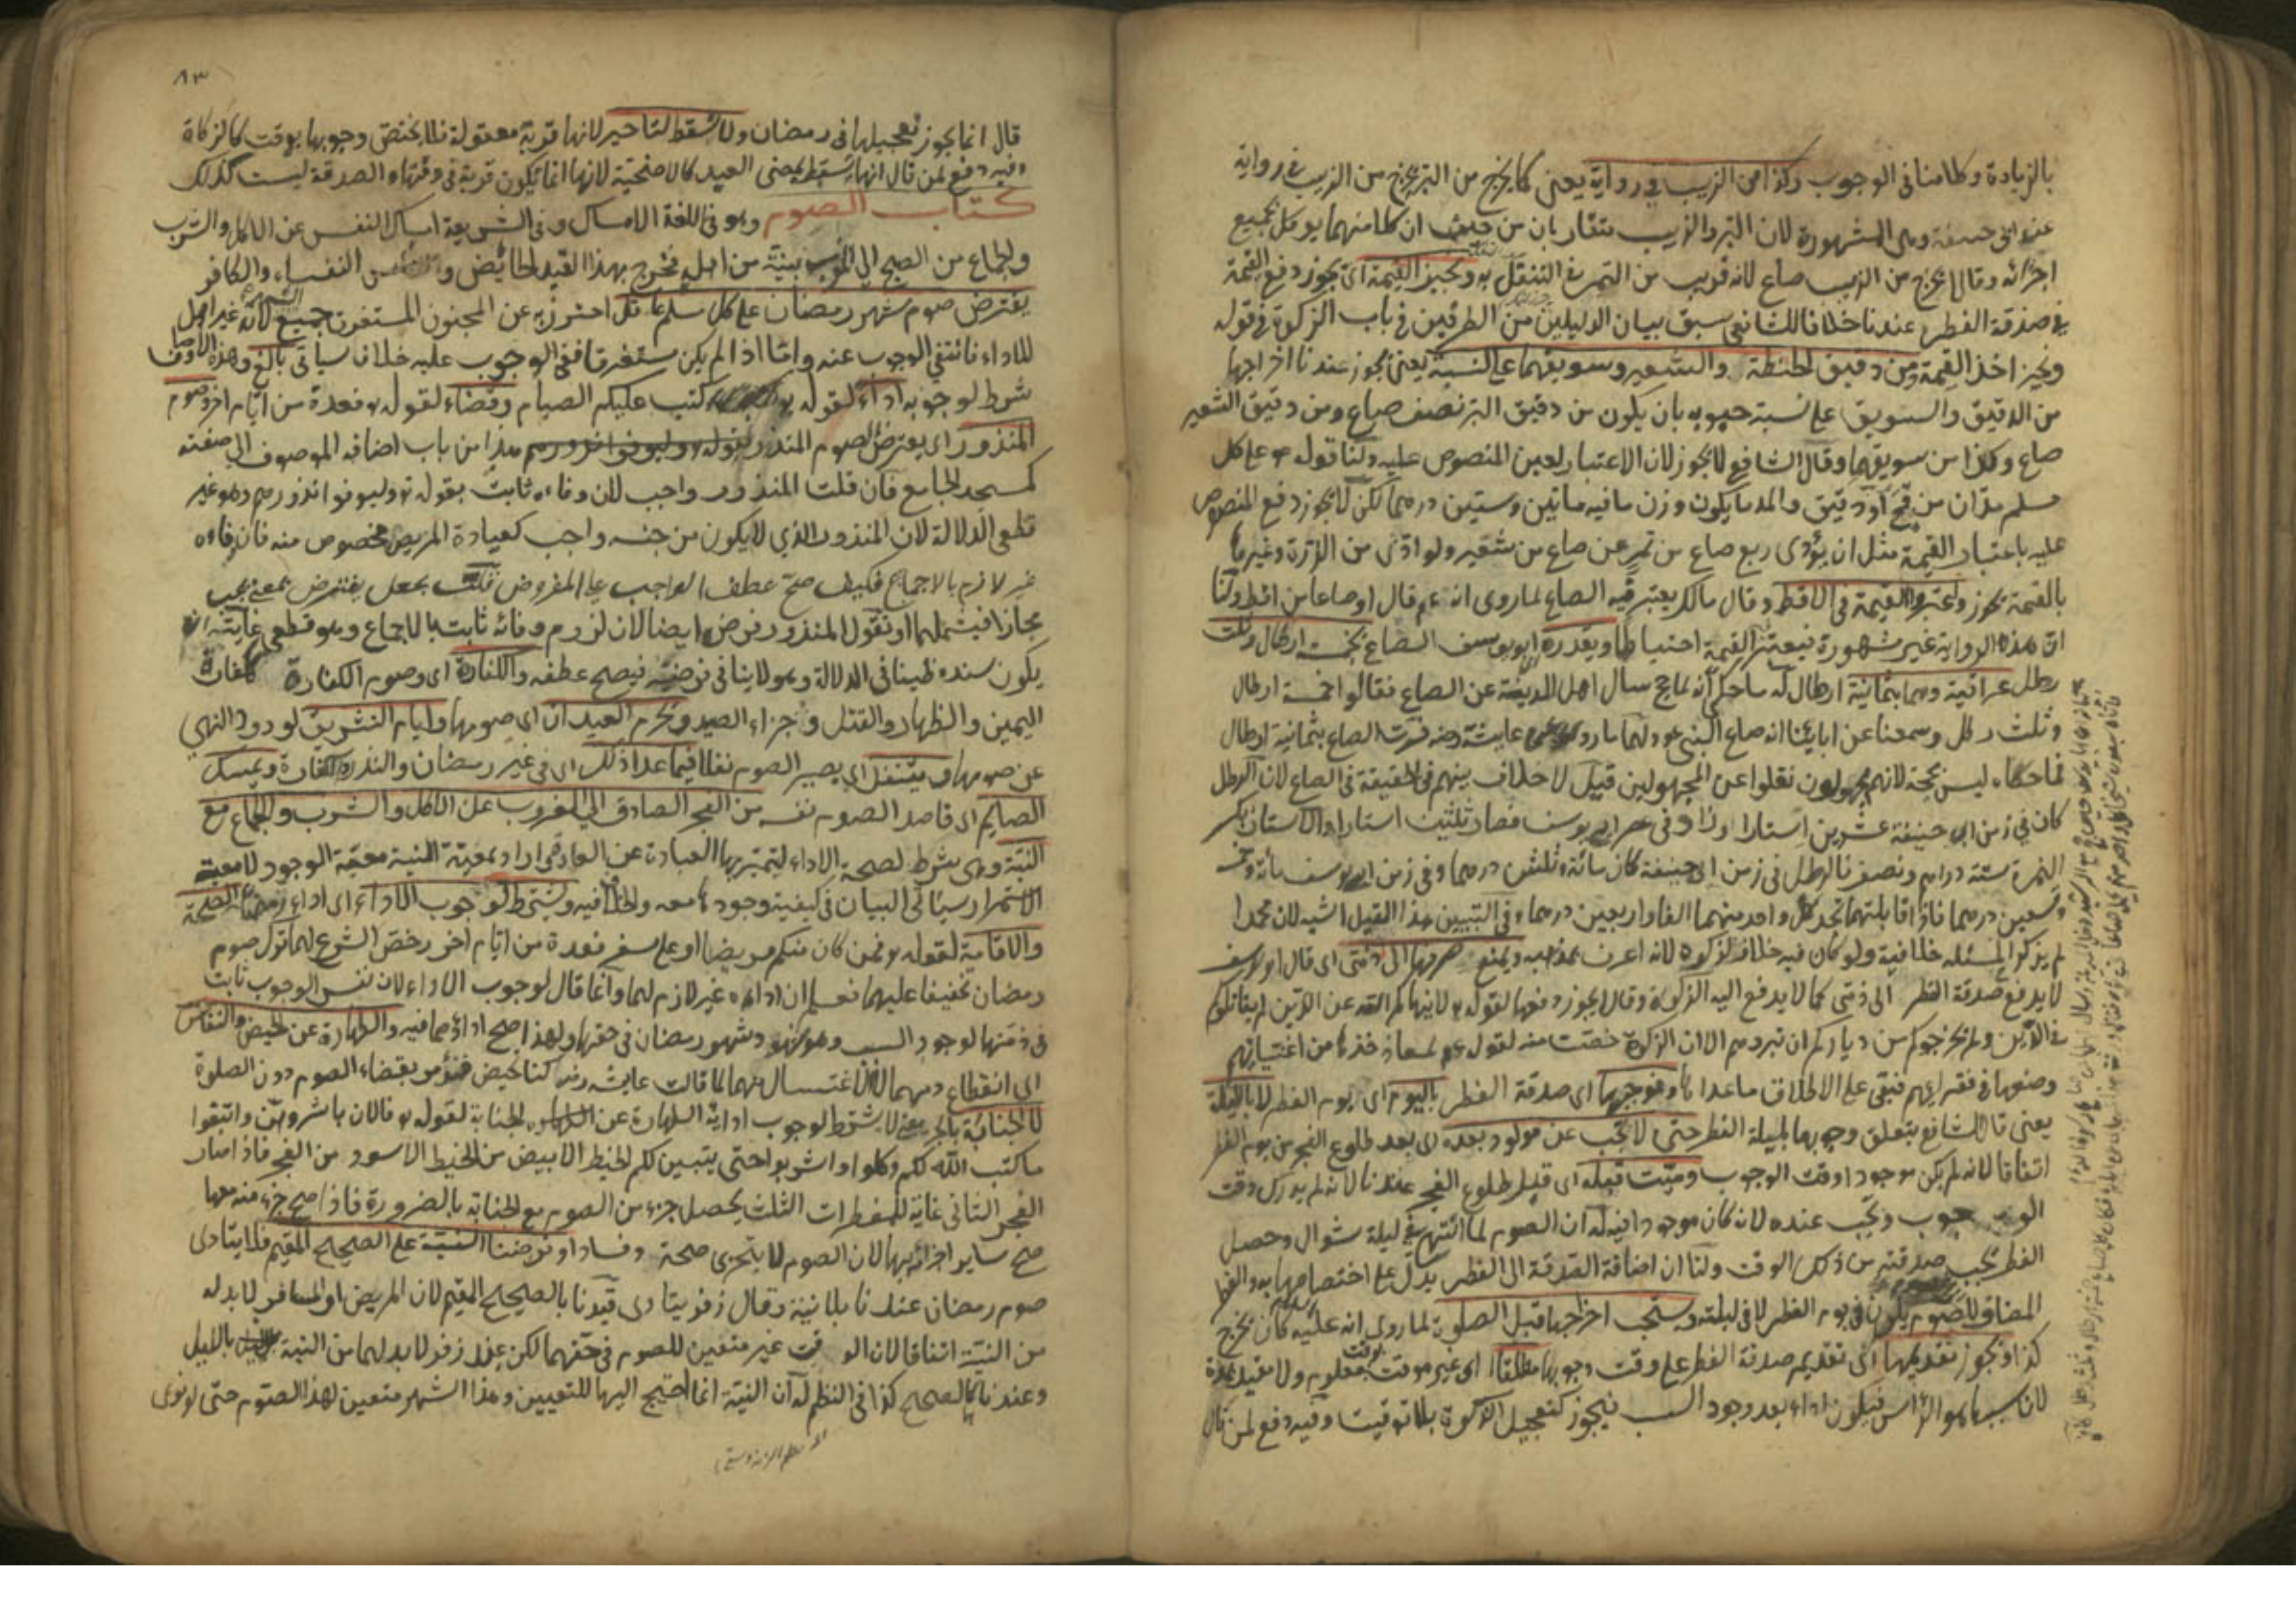 بالزيادة وكلامنا فى الوجوب وكذا من الزبيب فى رواية يعنى كما يخرج من البر يخرج من الزبيب فى رواية
عند ابى حنيفة وهى المشهورة لان البر والزبيب متقاربان من حيث ان كلا منهما يؤكل بجميع
اجزائه وقالا يخرج من الزبيب صاع لانه قريب من التمر فى التنقل به ونجيز القيمة اى يجوز دفع القيمة
فى صدقة الفطر عندنا خلافا للشافعى سبق بيان الدليلين من الطرفين فى باب الزكوة فى قوله
ونجيز اخذ القيمة ومن دقيق الحنطة والشعير وسويقهما على النسبة يعنى يجوز عندنا اخراجها
من الدقيق والسويق على نسبة حبوبه بان يكون من دقيق البر نصف صاع ومن دقيق الشعير
صاع وكذا من سويقهما وقال الشافعى لا يجوز لان الاعتبار لعين المنصوص عليه ولنا قوله م على كل
مسلم مدان من قمح او دقيق والمد ما يكون وزن ما فيه مأتين وستين درهما لكن لا يجوز دفع المنصوص
عليه باعتبار القيمة مثل ان يؤدى ربع صاع من تمر عن صاع من شعير ولو ادى من الذرة وغيرها
بالقيمة يجوز واعتبروا القيمة فى الاقط وقال مالك يعتبر فيه الصاع لما روى انه عم قال او صاعا من اقط ولنا
ان هذه الرواية غير مشهورة فيعتبر القيمة احتياطا ويقدره ابو يوسف الصاع بخمسة ارطال وثلث
رطل عراقية وهما بثمانية ارطال له ما حكى انه لما حج سال اهل المدينة عن الصاع فقالوا خمسة ارطال
وثلث رطل وسمعنا عن ابائنا انه صاع النبى عم ولهما ما روى عن عايشة رضه فسرت الصاع بثمانية ارطال
فما حكاه ليس بحجة لانهم مجهولون نقلوا عن المجهولين قيل لا خلاف بينهم فى الحقيقة فى الصاع لان الرطل
كان فى زمن ابى حنيفة عشرين استارا وزاد فى عصر ابى يوسف فصار ثلثين استارا والاستار بكسر
الهمزة ستة دراهم ونصف فالرطل فى زمن ابى حنيفة كان مائة وثلثين درهما وفى زمن ابى يوسف مائة وخمسة
وتسعين درهما فاذا قابلتهما تجد كل واحد منهما الفا واربعين درهما وفى التبيين هذا القيل اشبه لان محمدا
لم يذكر المسئلة خلافية ولو كان فيه خلاف لذكره لانه اعرف بمذهبه ويمنع صرفها الى ذمى اى قال ابو يوسف
لا يدفع صدقة الفطر الى ذمى كما لا يدفع اليه الزكوة وقالا يجوز دفعها لقوله تع لا ينهاكم الله عن الذين لم يقاتلوكم
فى الدين ولم يخرجوكم من دياركم ان تبروهم الا ان الزكوة خصت منه لقوله عم لمعاذ خذها من اغنيائهم
وضعها فى فقرائهم فبقى على الاطلاق ما عداها ونوجبها اى صدقة الفطر باليوم اى يوم الفطر لا بالليلة
يعنى قال الشافعى يتعلق وجوبها بليلة الفطر حتى لا تجب عن مولود بعده اى بعد طلوع الفجر من يوم الفطر
اتفاقا لانه لم يكن موجودا وقت الوجوب وميت قبله اى قبل طلوع الفجر عندنا لانه لم يدرك وقت
الوجوب وتجب عنده لانه كان موجودا فيه له ان الصوم لما انتهى فى ليلة شوال وحصل
الفطر يجب صدقته من ذلك الوقت ولنا ان اضافة الصدقة الى الفطر يدل على اختصاصها به والفطر
المضاد للصوم يكون فى يوم الفطر لا فى ليلته ويستحب اخراجها قبل الصلوة لما روى انه عليه كان يخرج
كذا ونجوز تقديمها اى تقديم صدقة الفطر على وقت وجوبها مطلقا اى غير موقت بوقت معلوم ولا مقيد بمدة
لان سببها هو الرأس فيكون اداء بعد وجود السبب فيجوز كتعجيل الزكوة بلا توقيت وفيه دفع لمن قال
٨٣
قال انما يجوز تعجيلها فى رمضان ولا تسقط لتاخير لانها قربة معقولة فلا يختص وجوبها بوقت كالزكاة
وفيه دفع لمن قال انها تسقط بمضى العيد كالاضحية لانها انما تكون قربة فى وقتها والصدقة ليست كذلك
كتاب الصوم وهو فى اللغة الامساك وفى الشريعة امساك النفس عن الاكل والشرب
والجماع من الصبح الى المغرب بنية من اهله فخرج بهذا القيد الحائض والنفساء والكافر
يفترض صوم شهر رمضان على كل مسلم عاقل احترز به عن المجنون المستغرق جميع الشهر لانه غير اهل
للاداء فانتفى الوجوب عنه واما اذا لم يكن مستغرقا ففى الوجوب عليه خلاف سيأتى بالغ وهذه الاوصاف
شرط لوجوبه اداء لقوله تع كتب عليكم الصيام وقضاء لقوله تع فعدة من ايام اخر وصوم
المنذور اى يفترض صوم المنذور هذا من باب اضافة الموصوف الى صفته
كمسجد الجامع فان قلت المنذور واجب لان وفاءه ثابت بقوله تع وليوفوا نذورهم وهو غير
قطعى الدلالة لان المنذور الذى لا يكون من جنسه واجب كعيادة المريض مخصوص منه فان وفاءه
غير لازم بالاجماع فكيف صح عطف الواجب على المفروض قلت يجعل يفترض بمعنى يجب
مجازا فيشملهما او نقول المنذور فرض ايضا لان لزوم وفائه ثابت بالاجماع وهو قطعى غايته ان
يكون سنده ظنيا فى الدلالة وهو لا ينافى فرضيته فيصح عطفه والكفارة اى وصوم الكفارة ككفارة
اليمين والظهار والقتل وجزاء الصيد ونحرم العيدان اى صومها وايام التشريق لورود النهى
عن صومها ويتنفل اى يصير الصوم نفلا فيما عدا ذلك اى فى غير رمضان والنذر والكفارة ويمسك
الصايم اى قاصد الصوم نفسه من الفجر الصادق الى الغروب عن الاكل والشرب والجماع مع
النية وهى شرط لصحة الاداء ليتميز بها العبادة عن العادة اراد بمعية النية معية الوجود لا معية
الاستمرار سيأتى البيان فى كيفية وجودها معه والخلاف فيه ويشترط لوجوب الاداء اى اداء رمضان الصحة
والاقامة لقوله تع فمن كان منكم مريضا او على سفر فعدة من ايام اخر رخص الشرع لهما ترك صوم
رمضان تخفيفا عليهما فعلم ان اداءه غير لازم لهما وانما قال لوجوب الاداء لان نفس الوجوب ثابت
فى ذمتها لوجود السبب وهو شهود شهر رمضان فى حقها ولهذا صح اداؤهما فيه والطهارة عن الحيض والنفاس
اى انقطاع دمهما لا الاغتسال منهما لما قالت عايشة رضه كنا نحيض فنؤمر بقضاء الصوم دون الصلوة
لا الجنابة بالجر يعنى لا يشترط لوجوب ادائه الطهارة عن الجنابة لقوله تع فالان باشروهن وابتغوا
ما كتب الله لكم وكلوا واشربوا حتى يتبين لكم الخيط الابيض من الخيط الاسود من الفجر فاذا صار
الفجر الثانى غاية للمفطرات الثلث يحصل جزء من الصوم مع الجنابة بالضرورة فاذا صح جزء منه معها
صح ساير اجزائه بها لان الصوم لا يتجزى صحة وفسادا وفرضنا النية على الصحيح المقيم فلا يتادى
صوم رمضان عندنا بلا نية وقال زفر يتادى قيدنا بالصحيح المقيم لان المريض او المسافر لا بد له
من النية اتفاقا لان الوقت غير متعين للصوم فى حقهما لكن عند زفر لا بد لهما من النية بالليل
وعندنا كالصحيح كذا فى النظم له ان النية انما احتيج اليها للتعيين وهذا الشهر متعين لهذا الصوم حتى لو نوى